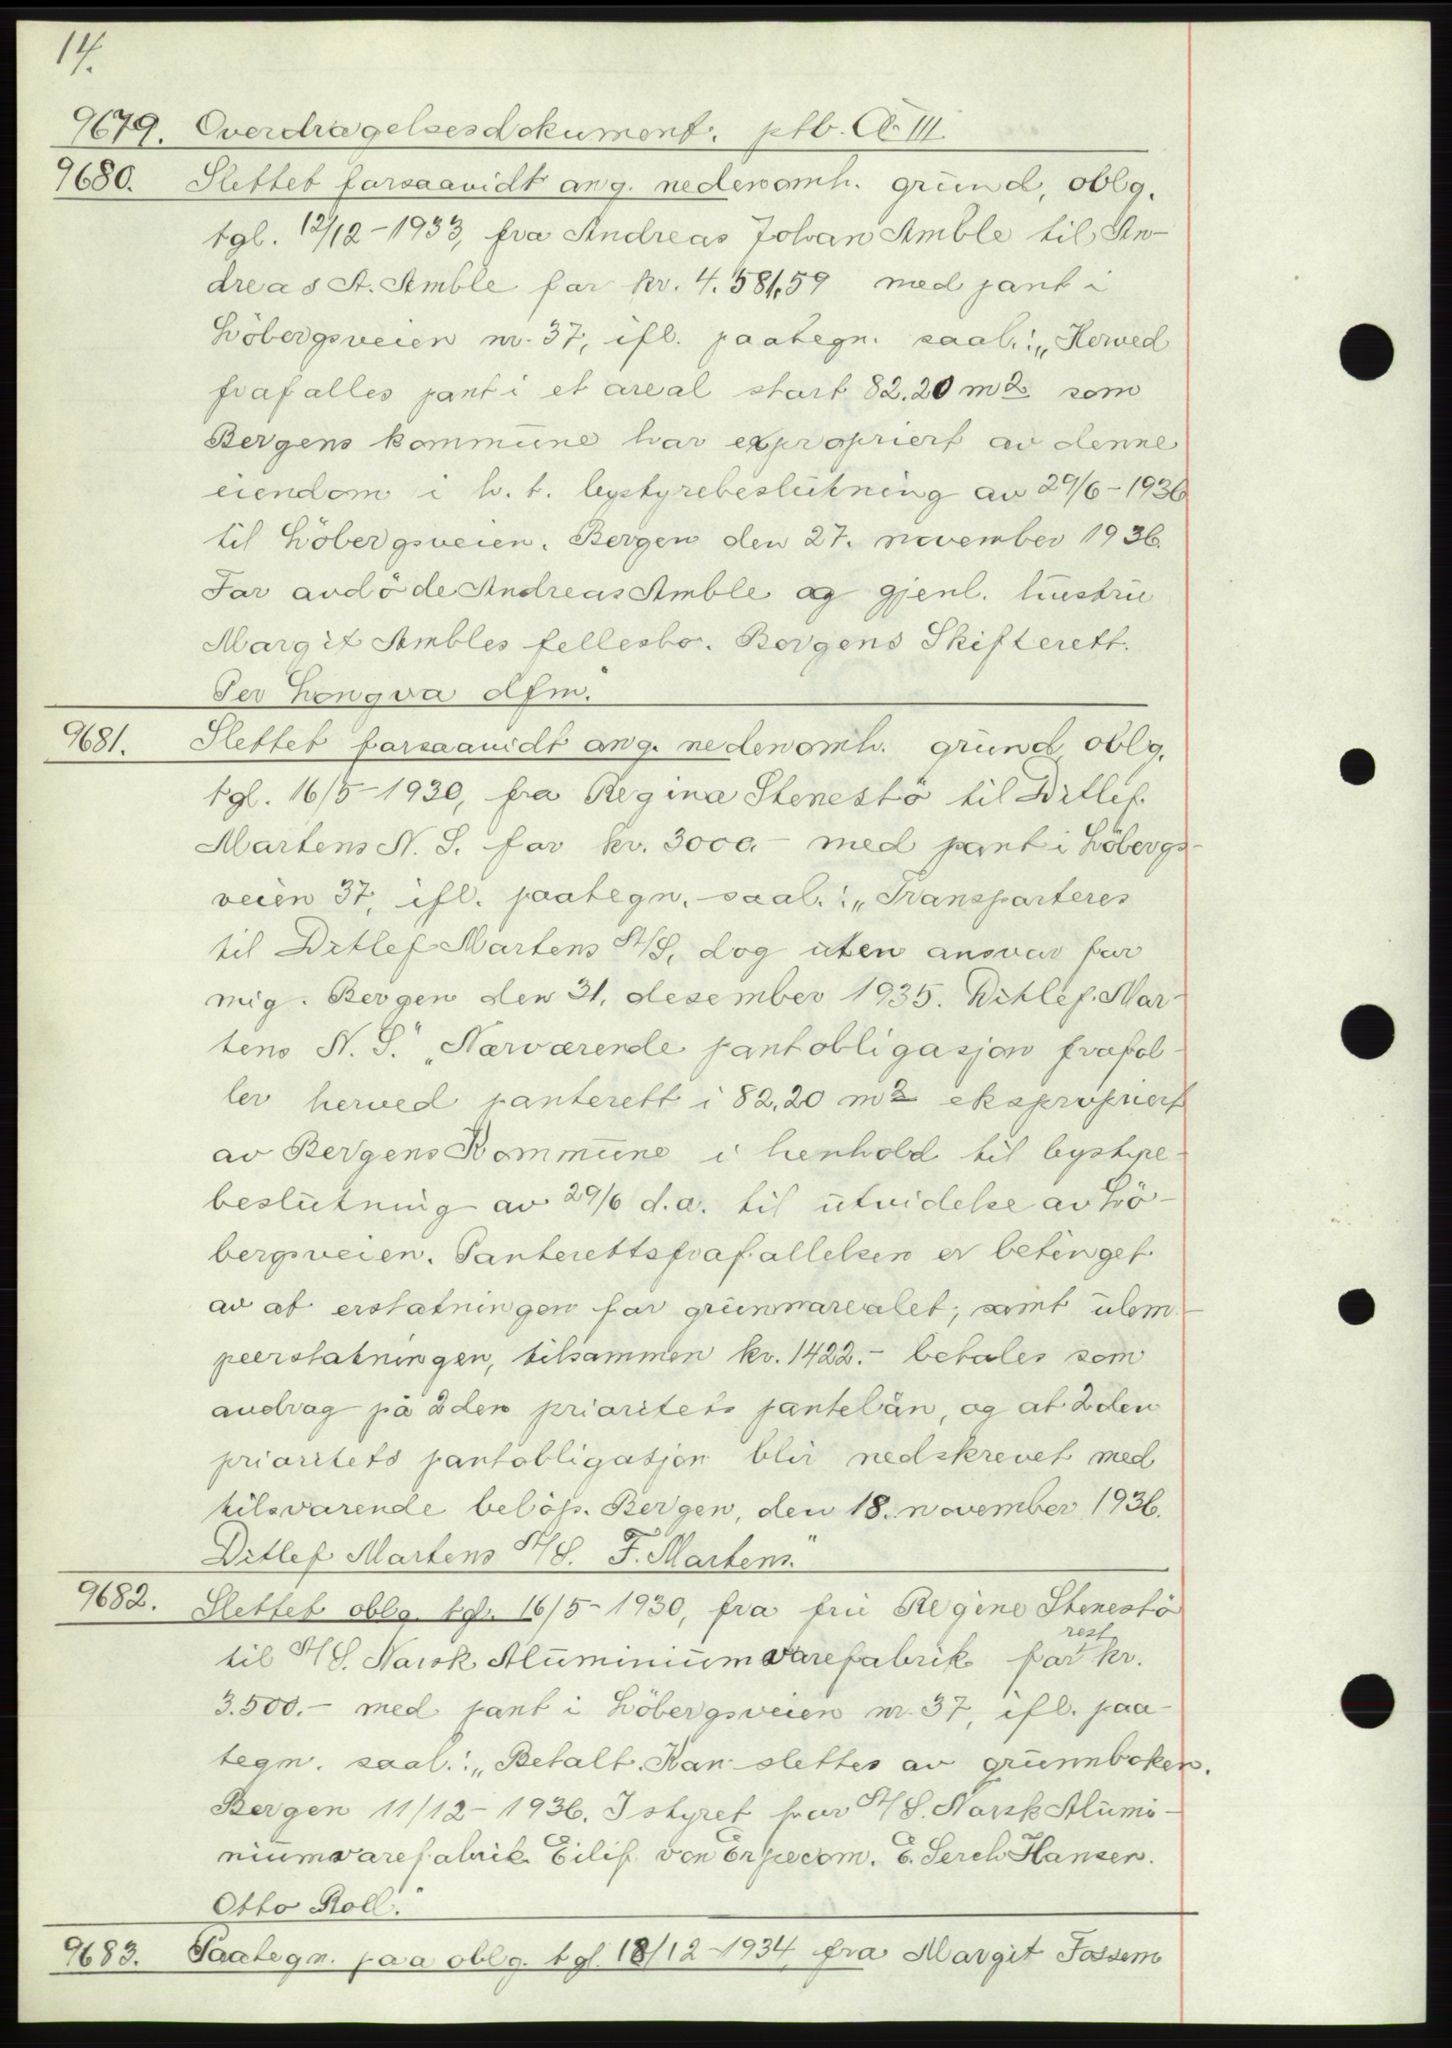 14.
9679. Overdragelsesdokument. ptb. A. III.
9680. Slettet forsaavidt ang. nedenomh. grund, oblg.
tgl. 12/12-1933, fra Andreas Johan Amble til An-
dreas A. Amble for kr. 4.581,59 med pant i
Löbergsveien nr. 37, ifl. paategn. saal.: „Herved
frafalles pant i et areal stort 82.20 m2 som
Bergens kommune har expropriert av denne
eiendom i h. t. bystyrebeslutning av 29/6-1936
til Löbergsveien. Bergen den 27. november 1936.
For avdöde Andreas Amble og gjenl. hustru
Margit Ambles fellesbo. Bergens Skifterett.
Per Longva dfm."
9681. Slettet forsaavidt ang. nedenomh. grund oblg.
tgl. 16/5-1930, fra Regina Stenestö til Ditlef
Martens N. S. for kr. 3000.- med pant i Löbergs-
veien 37, ifl. paategn. saal.: „Transporteres
til Ditlef Martens A/S, dog uten ansvar for
mig. Bergen den 31. desember 1935. Ditlef Mar-
tens N. S." „Nærværende pantobligasjon frafal-
ler herved panterett i 82,20 m2 ekspropriert
av Bergens Kommune i henhold til bystyre-
beslutning av 29/6 d.a. til utvidelse av Lö-
bergsveien. Panterettsfrafallelsen er betinget
av at erstatningen for grunnarealet, samt ulem-
peerstatningen, tilsammen kr. 1422.- betales som
avdrag på 2den prioritets pantelån, og at 2den
prioritets pantobligasjon blir nedskrevet med
tilsvarende belöp. Bergen, den 18. november 1936.
Ditlef Martens A/S. F. Martens."
9682. Slettet oblg. tgl. 16/5-1930, fra fru Regine Stenestö
til A/S. Norsk Aluminiumvarefabrik for rest kr.
3.500.- med pant i Löbergsveien nr. 37, ifl. paa-
tegn. saal.: „Betalt. Kan slettes av grunnboken.
Bergen 11/12-1936. I styret for A/S. Norsk Alumi-
niumvarefabrik Eilif von Erpecom. E. Serch Hansen.
Otto Roll."
9683. Paategn. paa oblg. tgl. 18/12-1934, fra Margit Fossem